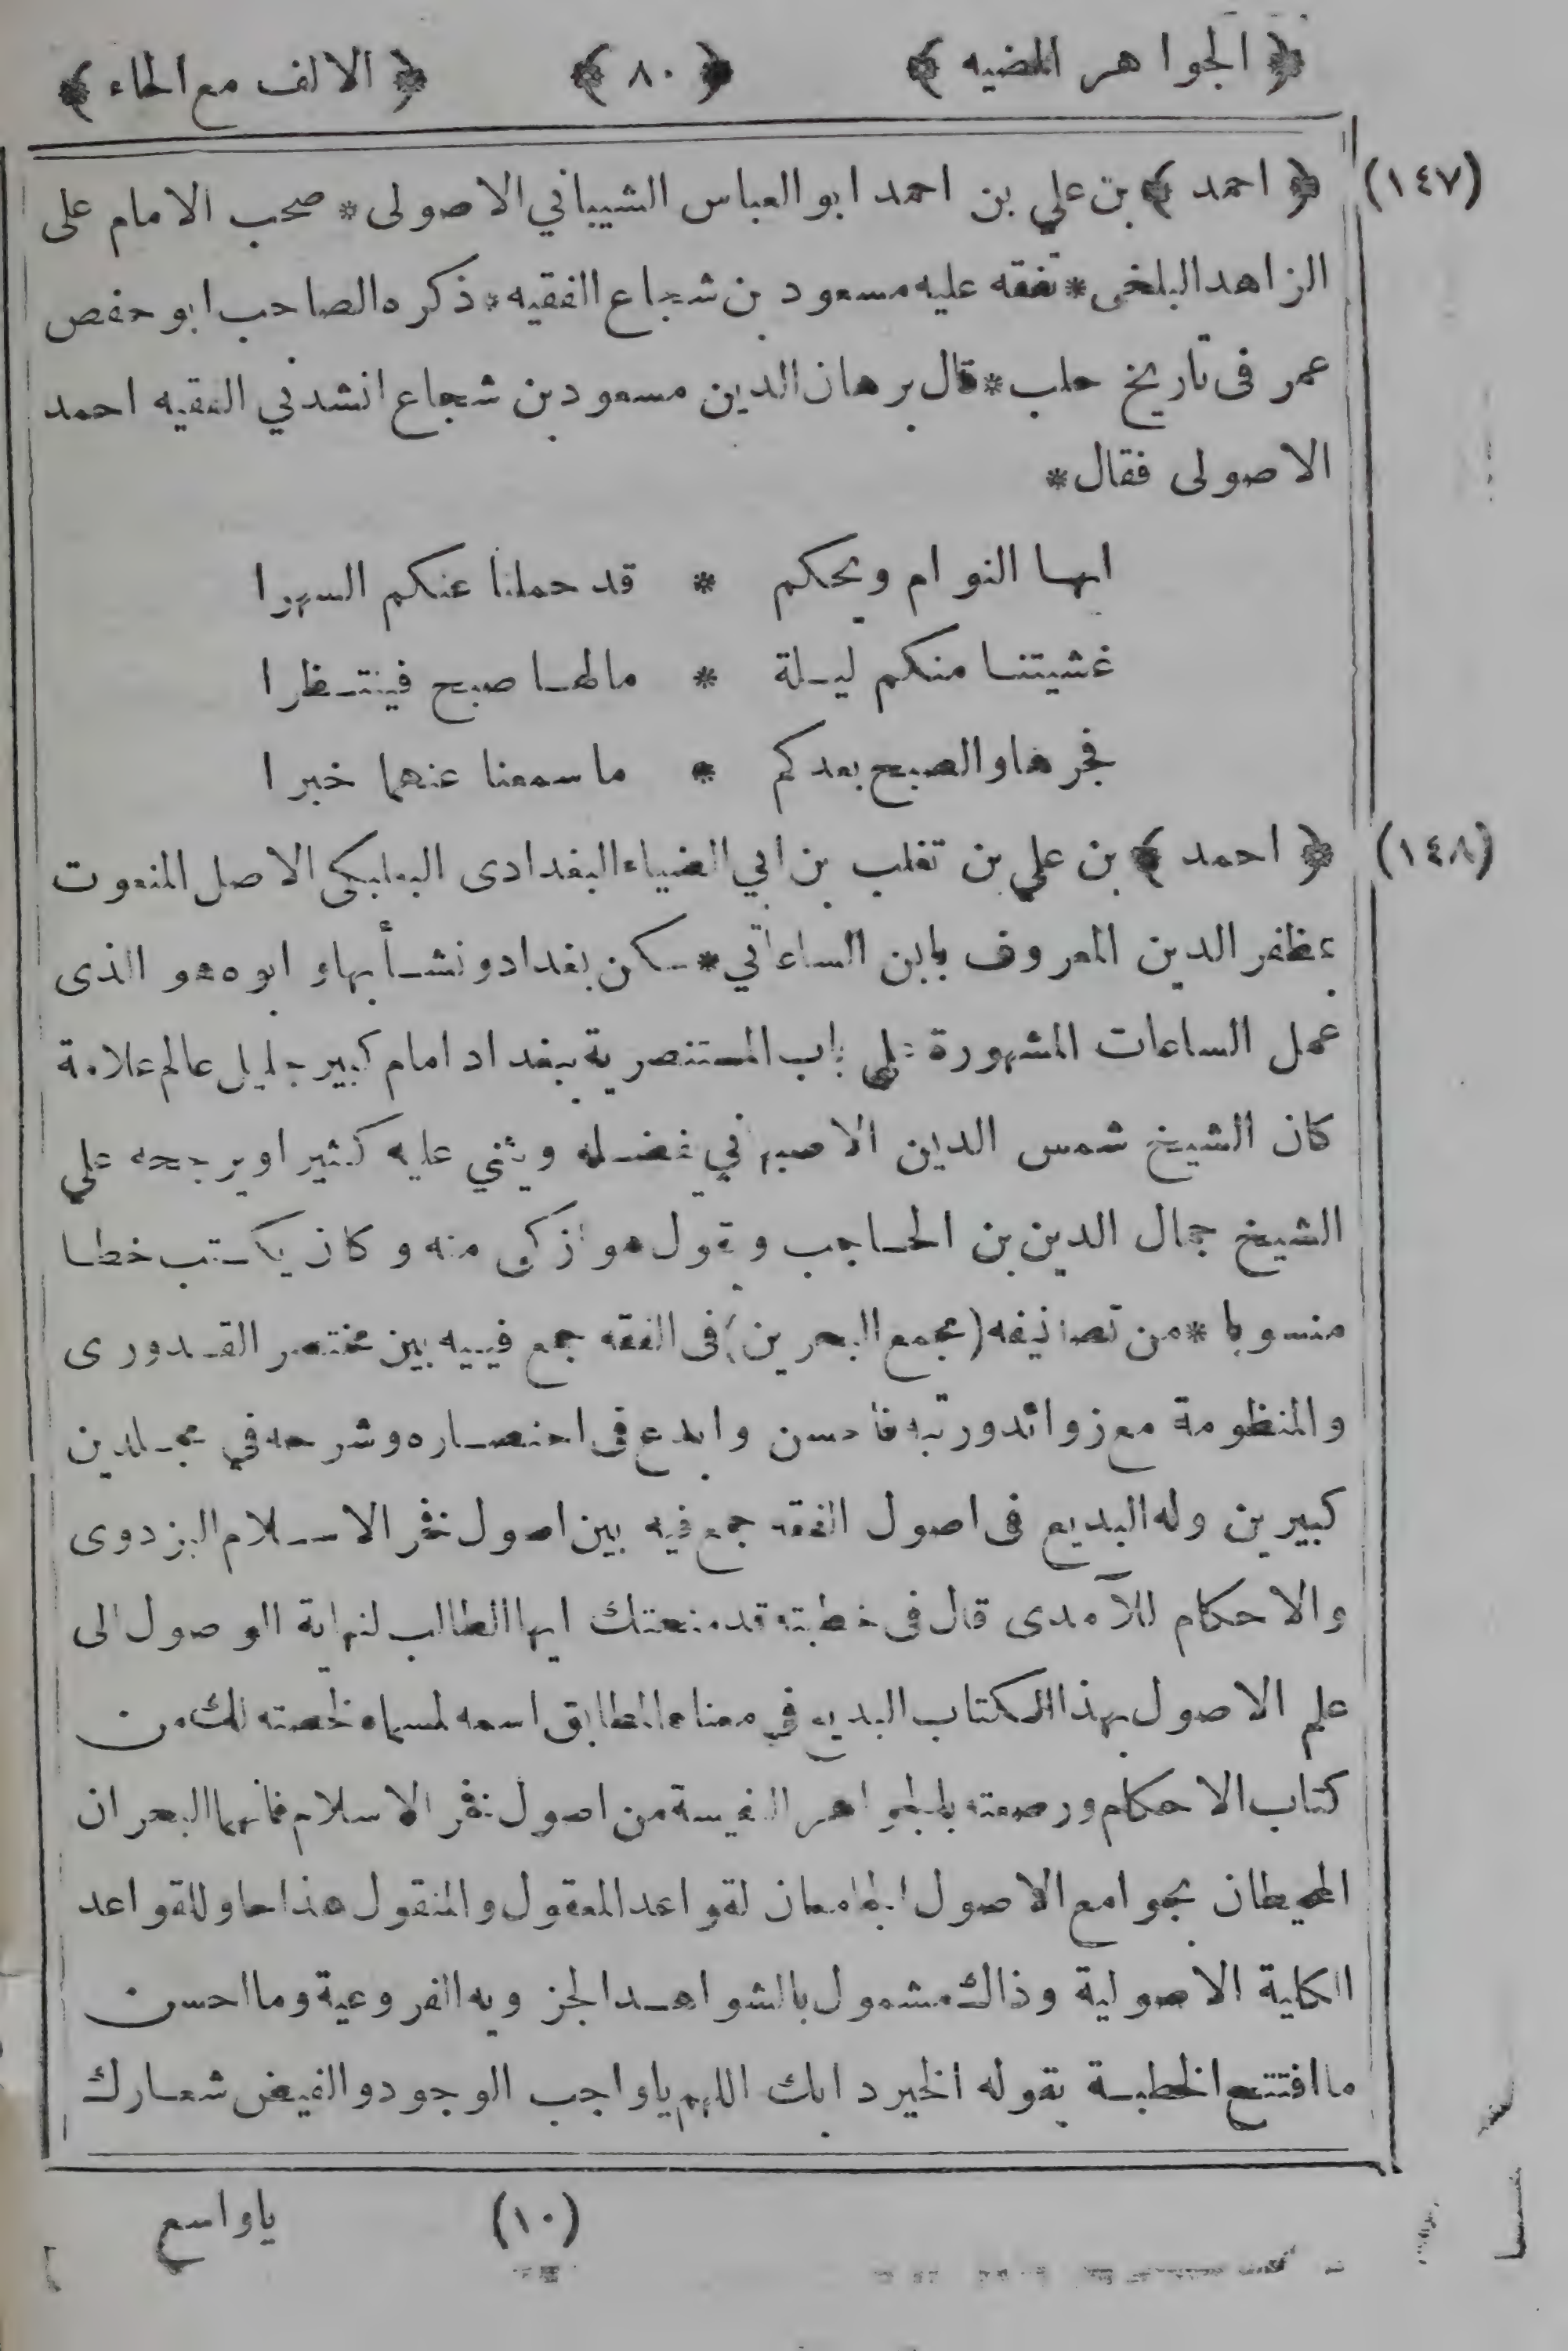 ﴿ الجواهر المضيه ﴾ ﴿ ٨٠ ﴾ ﴿ الالف مع الحاء ﴾
(١٤٧) ﴿ احمد ﴾ بن علي بن احمد ابو العباس الشيباني الاصولى * صحب الامام على
الزاهد البلخى * تفقه عليه مسعود بن شجاع الفقيه * ذكره الصاحب ابو حفص
عمر فى تاريخ حلب * قال برهان الدين مسعود بن شجاع انشدني الفقيه احمد
الاصولى فقال *
ايها النوام ويحكم * قد حملنا عنكم السهرا
غشيتنا منكم ليلة * مالها صبح فينتظرا
فجرها والصبح بعدكم * ما سمعنا عنهما خبرا
(١٤٨) ﴿ احمد ﴾ بن علي بن تغلب بن ابي الضياء البغدادى البعلبكى الاصل المنعوت
بمظفر الدين المعروف بابن الساعاتي * سكن بغداد ونشأ بها وابوه هو الذى
عمل الساعات المشهورة على باب المستنصرية ببغداد امام كبير جليل عالم علامة
كان الشيخ شمس الدين الاصبهاني يفضله ويثني عليه كثيرا ويرجحه علي
الشيخ جمال الدين بن الحاجب ويقول هو ازكى منه وكان يكتب خطا
منسوبا * من تصانيفه (مجمع البحرين) فى الفقه جمع فيه بين مختصر القدورى
والمنظومة مع زوائد ورتبه فاحسن وابدع فى اختصاره وشرحه في مجلدين
كبيرين وله البديع فى اصول الفقه جمع فيه بين اصول فخر الاسلام البزدوى
والاحكام للآمدى قال فى خطبته قد منحتك ايها الطالب لنهاية الوصول الى
علم الاصول بهذا الكتاب البديع في معناه المطابق اسمه لمسماه لخصته لك من
كتاب الاحكام ورصعته بالجواهر النفيسة من اصول فخر الاسلام فانهما البحران
المحيطان بجوامع الاصول الجامعان لقواعد المعقول والمنقول هذا حاو للقواعد
الكلية الاصولية وذاك مشمول بالشواهد الجزويه الفروعية وما احسن
ما افتتح الخطبة بقوله الخير دابك اللهم يا واجب الوجود والفيض شعارك
(١٠) يا واسع